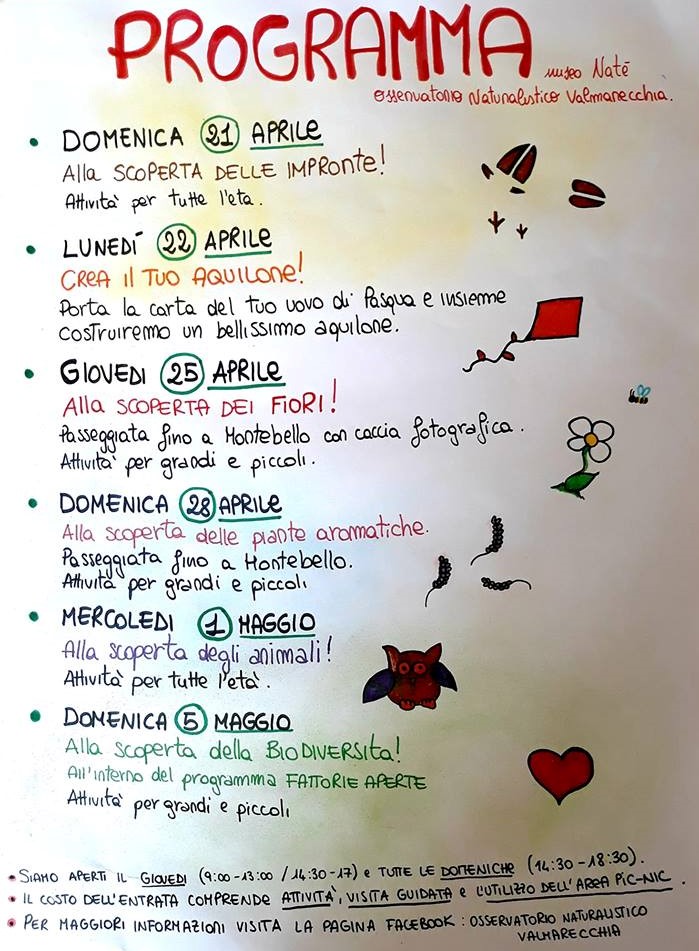 PROGRAMMA
museo Natè
Osservatorio Naturalistico Valmarecchia.
• DOMENICA 21 APRILE
Alla SCOPERTA DELLE IMPRONTE!
Attività per tutte l'età.
• LUNEDÌ 22 APRILE
CREA il TUO AQUILONE!
Porta la carta del tuo uovo di Pasqua e insieme
costruiremo un bellissimo aquilone.
• GIOVEDI 25 APRILE
Alla SCOPERTA DEI FIORI!
Passeggiata fino a Montebello con caccia fotografica.
Attività per grandi e piccoli.
• DOMENICA 28 APRILE
Alla scoperta delle piante aromatiche.
Passeggiata fino a Montebello.
Attività per grandi e piccoli
• MERCOLEDI 1 MAGGIO
Alla scoperta degli animali!
Attività per tutte l'età.
• DOMENICA 5 MAGGIO
Alla scoperta della BIODIVERSITà!
All'interno del programma FATTORIE APERTE
Attività per grandi e piccoli
• SIAMO APERTI IL GIOVEDI (9:00-13:00 / 14:30-17) e TUTTE LE DOMENICHE (14:30-18:30).
• IL COSTO DELL'ENTRATA COMPRENDE ATTIVITÀ, VISITA GUIDATA e L'UTILIZZO DELL'AREA PIC-NIC.
• PER MAGGIORI INFORMAZIONI VISITA LA PAGINA FACEBOOK: OSSERVATORIO NATURALISTICO
VALMARECCHIA